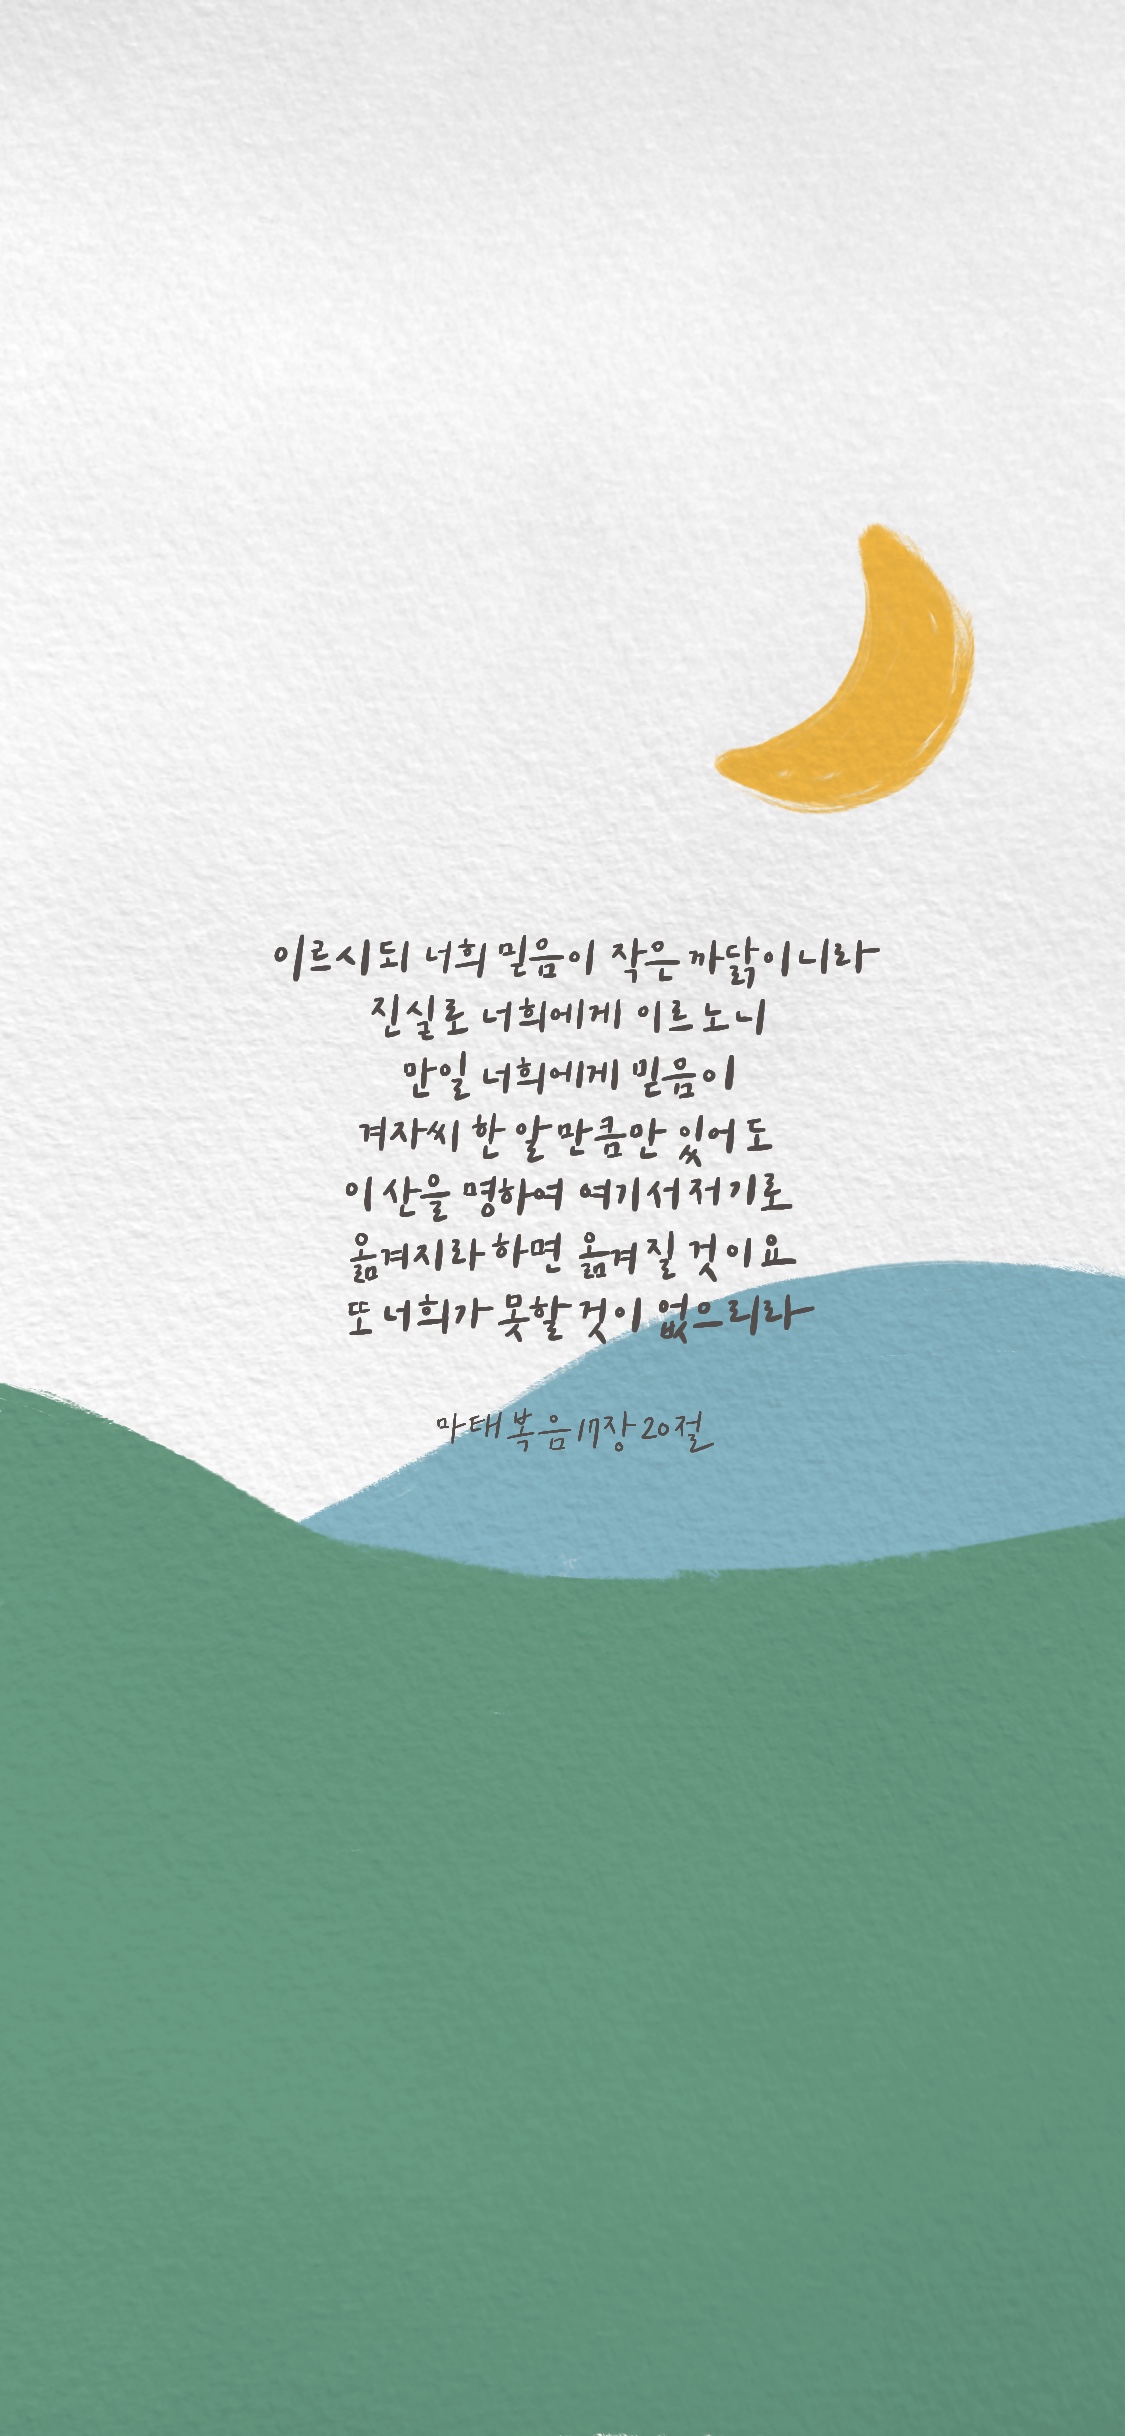 이르시되 너희 믿음이 작은 까닭이니라
진실로 너희에게 이르노니
만일 너희에게 믿음이
겨자씨 한 알 만큼만 있어도
이 산을 명하여 여기서 저기로
옮겨지라 하면 옮겨질 것이요
또 너희가 못할 것이 없으리라
마태복음 17장 20절